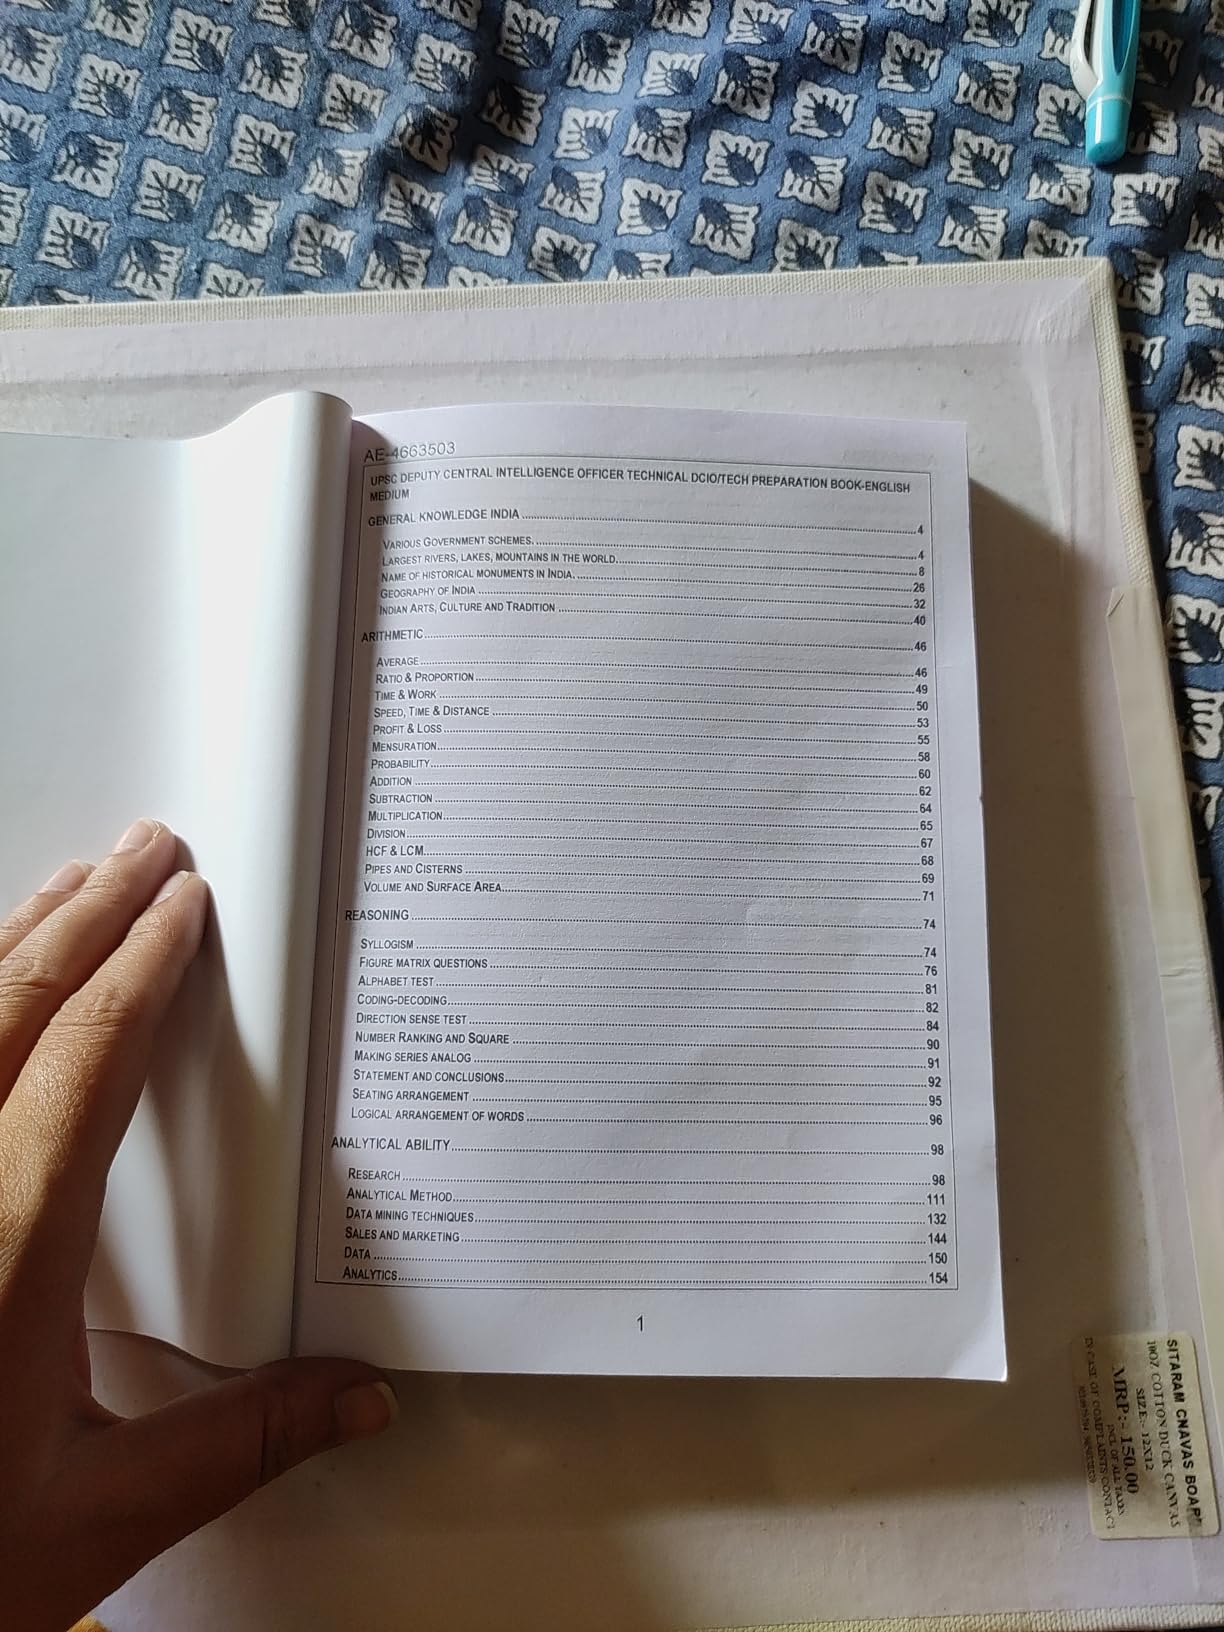 AE-4663503
UPSC DEPUTY CENTRAL INTELLIGENCE OFFICER TECHNICAL DCIO/TECH PREPARATION BOOK-ENGLISH
MEDIUM
GENERAL KNOWLEDGE INDIA ........ 4
VARIOUS GOVERNMENT SCHEMES. ........ 4
LARGEST RIVERS, LAKES, MOUNTAINS IN THE WORLD. ........ 8
NAME OF HISTORICAL MONUMENTS IN INDIA. ........ 26
GEOGRAPHY OF INDIA ........ 32
INDIAN ARTS, CULTURE AND TRADITION ........ 40
ARITHMETIC ........ 46
AVERAGE ........ 46
RATIO & PROPORTION ........ 49
TIME & WORK ........ 50
SPEED, TIME & DISTANCE ........ 53
PROFIT & LOSS ........ 55
MENSURATION ........ 58
PROBABILITY ........ 60
ADDITION ........ 62
SUBTRACTION ........ 64
MULTIPLICATION ........ 65
DIVISION ........ 67
HCF & LCM ........ 68
PIPES AND CISTERNS ........ 69
VOLUME AND SURFACE AREA ........ 71
REASONING ........ 74
SYLLOGISM ........ 74
FIGURE MATRIX QUESTIONS ........ 76
ALPHABET TEST ........ 81
CODING-DECODING ........ 82
DIRECTION SENSE TEST ........ 84
NUMBER RANKING AND SQUARE ........ 90
MAKING SERIES ANALOG ........ 91
STATEMENT AND CONCLUSIONS ........ 92
SEATING ARRANGEMENT ........ 95
LOGICAL ARRANGEMENT OF WORDS ........ 96
ANALYTICAL ABILITY ........ 98
RESEARCH ........ 98
ANALYTICAL METHOD ........ 111
DATA MINING TECHNIQUES ........ 132
SALES AND MARKETING ........ 144
DATA ........ 150
ANALYTICS ........ 154
1
SITARAM CNAVAS BOARD
10OZ COTTON DUCK CANVAS
SIZE:- 12X12
MRP:- 150.00
INCL. OF ALL TAXES
IN CASE OF COMPLAINTS CONTACT